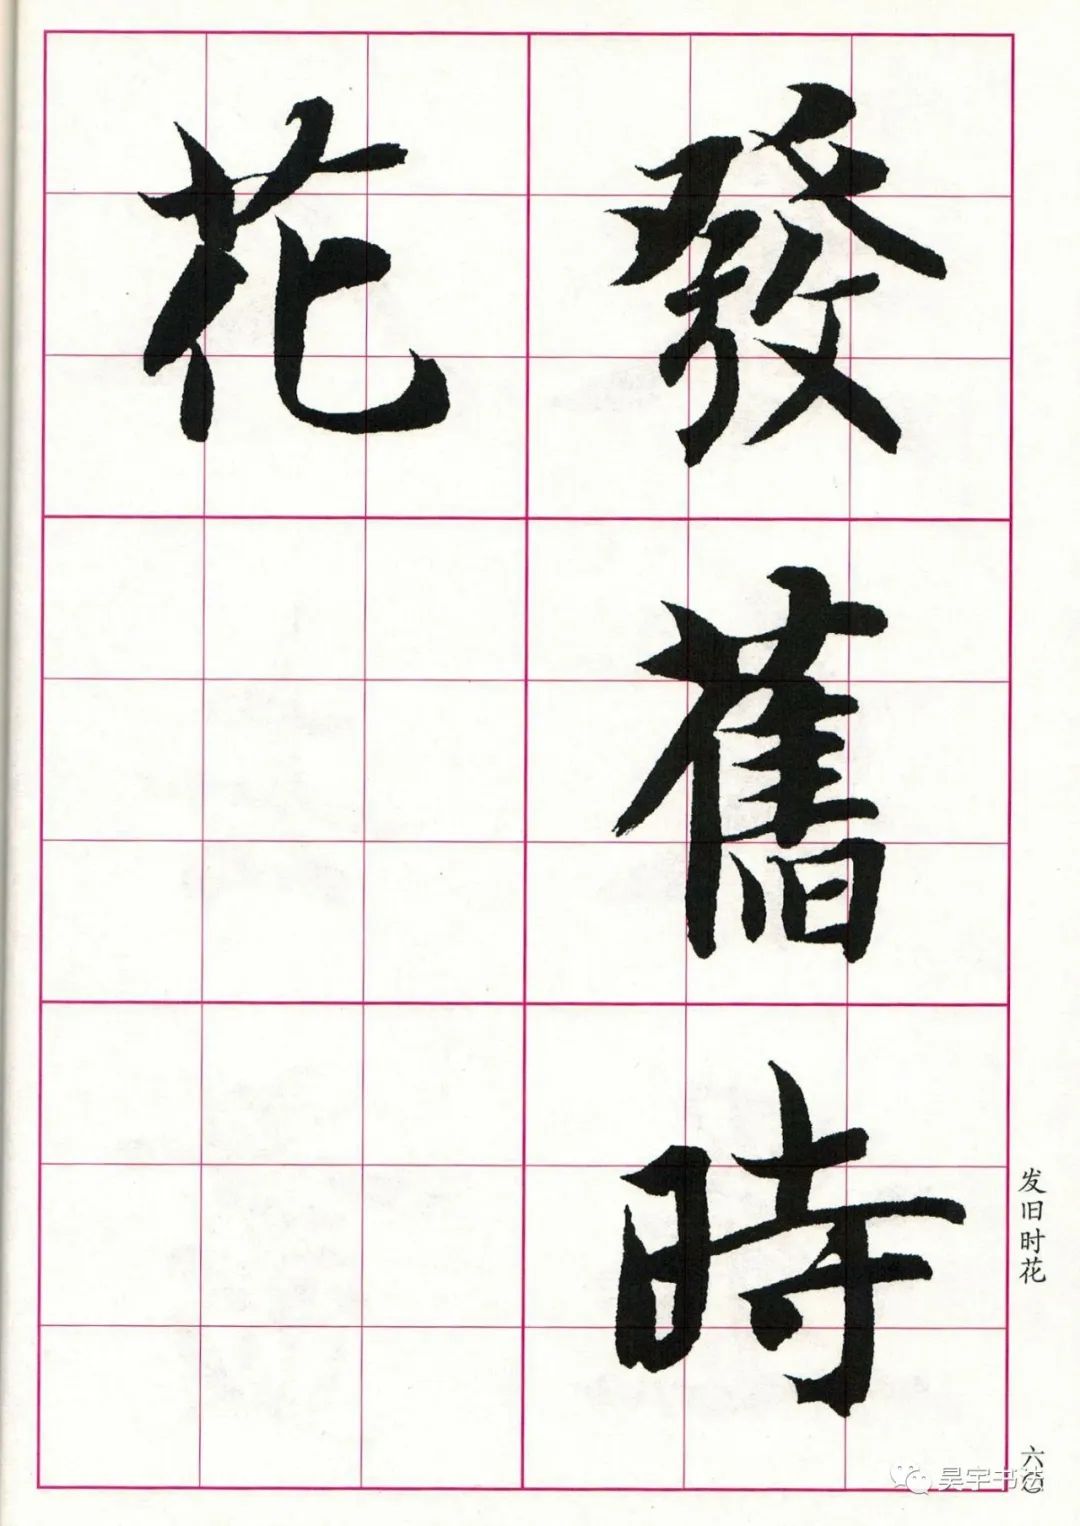 發舊時
花
发旧时花
六〇
昊宇书法